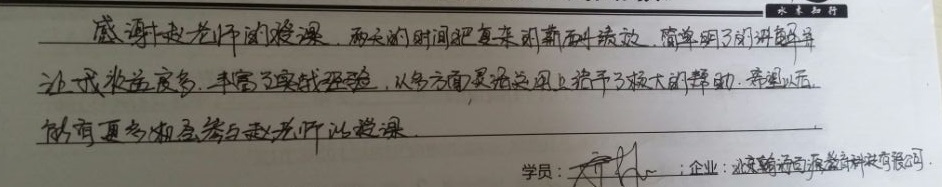 水木知行
感谢赵老师的授课，两天的时间把复杂的薪酬绩效，简单明了的讲解并
让我收益度多，丰富了实战经验，从多方面灵活运用上给予了极大的帮助，希望以后
能有更多机会参与赵老师的授课
学员： 企业：北京 教育科技有限公司.